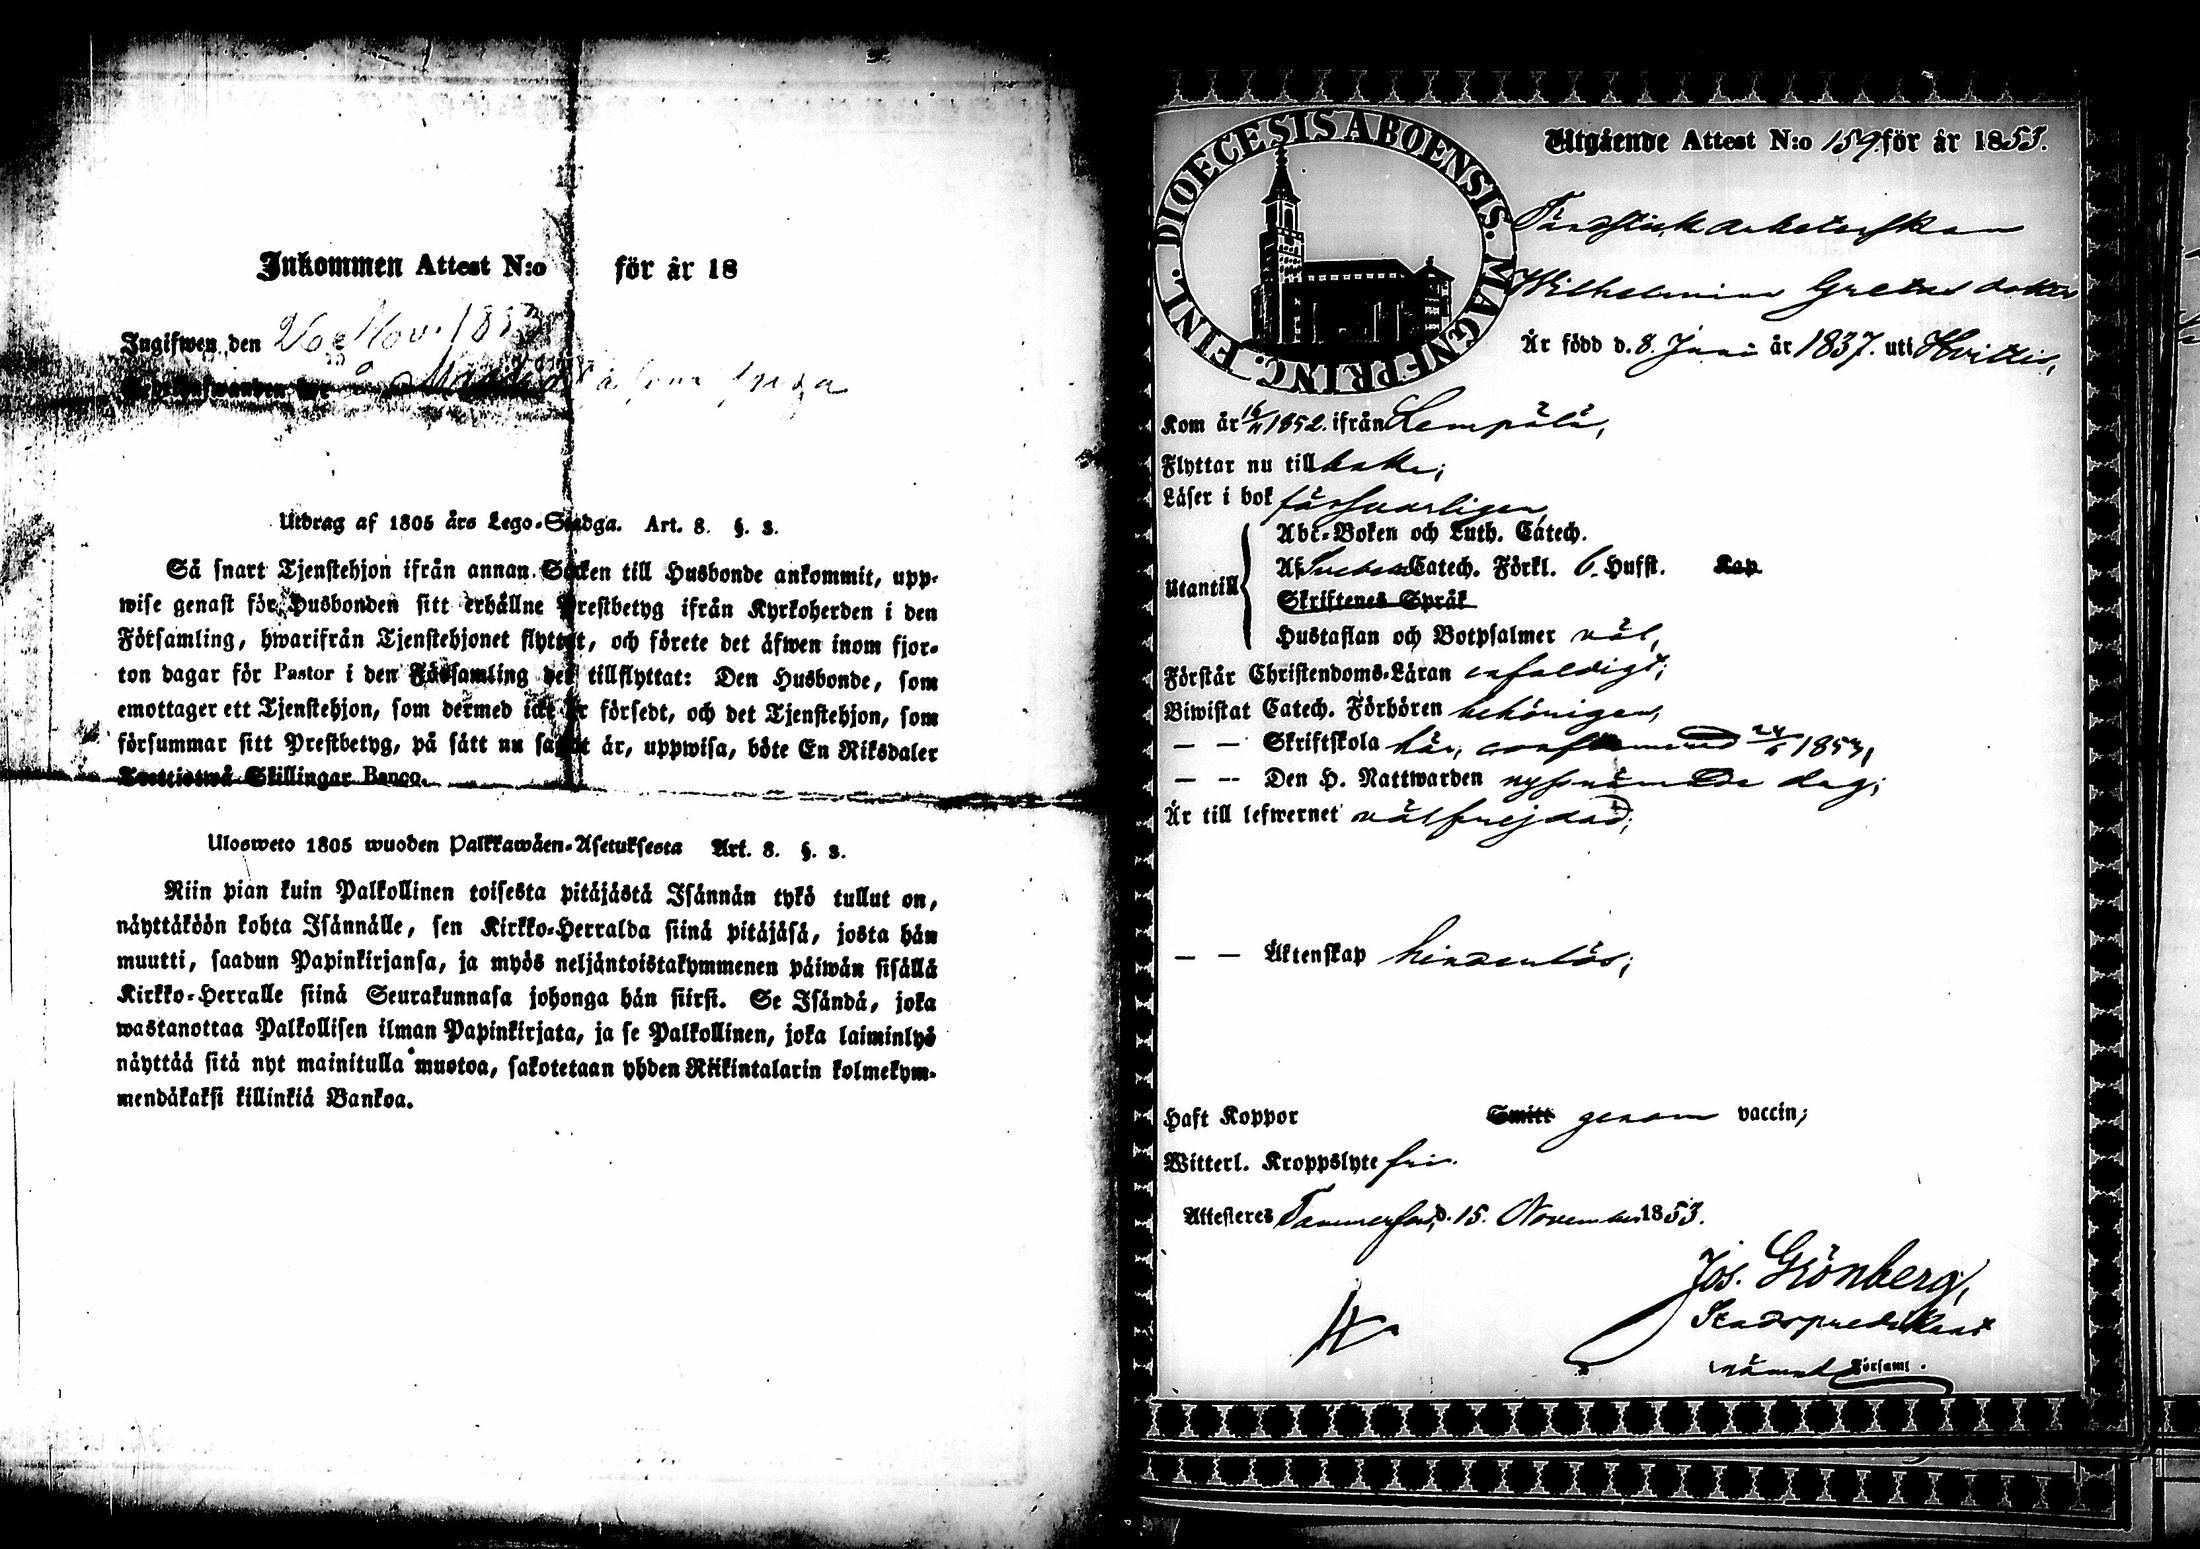 Inkommen Attest N:o för år 18
Ingifwen den 26 Nov. 1853
Utdrag af 1805 års Lego-Stadga. Art. 8. §. 3.
Så snart Tjenstehjon ifrån annan Socken till Husbonde ankommit, upp-
wise genast för Husbonden sitt erhållne Prestbetyg ifrån Kyrkoherden i den
Församling, hwarifrån Tjenstehjonet flyttat, och förete det äfwen inom fjor-
ton dagar för Pastor i den Församling det tillflyttat: Den Husbonde, som
emottager ett Tjenstehjon, som dermed icke är försedt, och det Tjenstehjon, som
försummar sitt Prestbetyg, på sätt nu sagdt är, uppwisa, böte En Riksdaler
Trettiotwå Skillingar Banco.
Ulosweto 1805 wuoden Palkkawäen-Asetuksesta Art. 8. §. 3.
Niin pian kuin Palkollinen toisesta pitäjästä Isännän tykö tullut on,
näyttäköön kohta Isännälle, sen Kirkko-Herralda siinä pitäjäsä, josta hän
muutti, saadun Papinkirjansa, ja myös neljäntoistakymmenen päiwän sisällä
Kirkko-Herralle siinä Seurakunnasa johonga hän siirsi. Se Isändä, joka
wastanottaa Palkollisen ilman Papinkirjata, ja se Palkollinen, joka laiminlyö
näyttää sitä nyt mainitulla muotoa, sakotetaan yhden Riikintalarin kolmekym-
mendäkaksi killinkiä Bankoa.
DIOECESIS ABOENSIS. MAGNI PRINC. FINL.
Utgående Attest N:o 159 för år 1853.
Wilhelmina Gretas dotter
Är född d. 8. Juni år 1837. uti Hvittis,
Kom år 16/11 1852. ifrån Lempälä,
Flyttar nu till baka;
Läser i bok försvarligen,
Utantill
Abc-Boken och Luth. Catech.
Af Svebelii Catech. Förkl. 6. Hufst. Kap
Skriftenes Språk
Hustaflan och Botpsalmer väl,
Förstår Christendoms-Läran enfaldigt;
Biwistat Catech. Förhören behörigen,
— — Skriftskola här, confirmerad 24/6 1853,
— — Den H. Nattwarden nyssnämnde dag;
Är till lefwernet välfrejdad;
— — Äktenskap hinderlös;
Haft Koppor Smitt genom vaccin;
Witterl. Kroppslyte fri.
Attesteres Tammerfors, d. 15. November 1853.
Jos. Grönberg,
Stadspredikant
nämnd Församl.